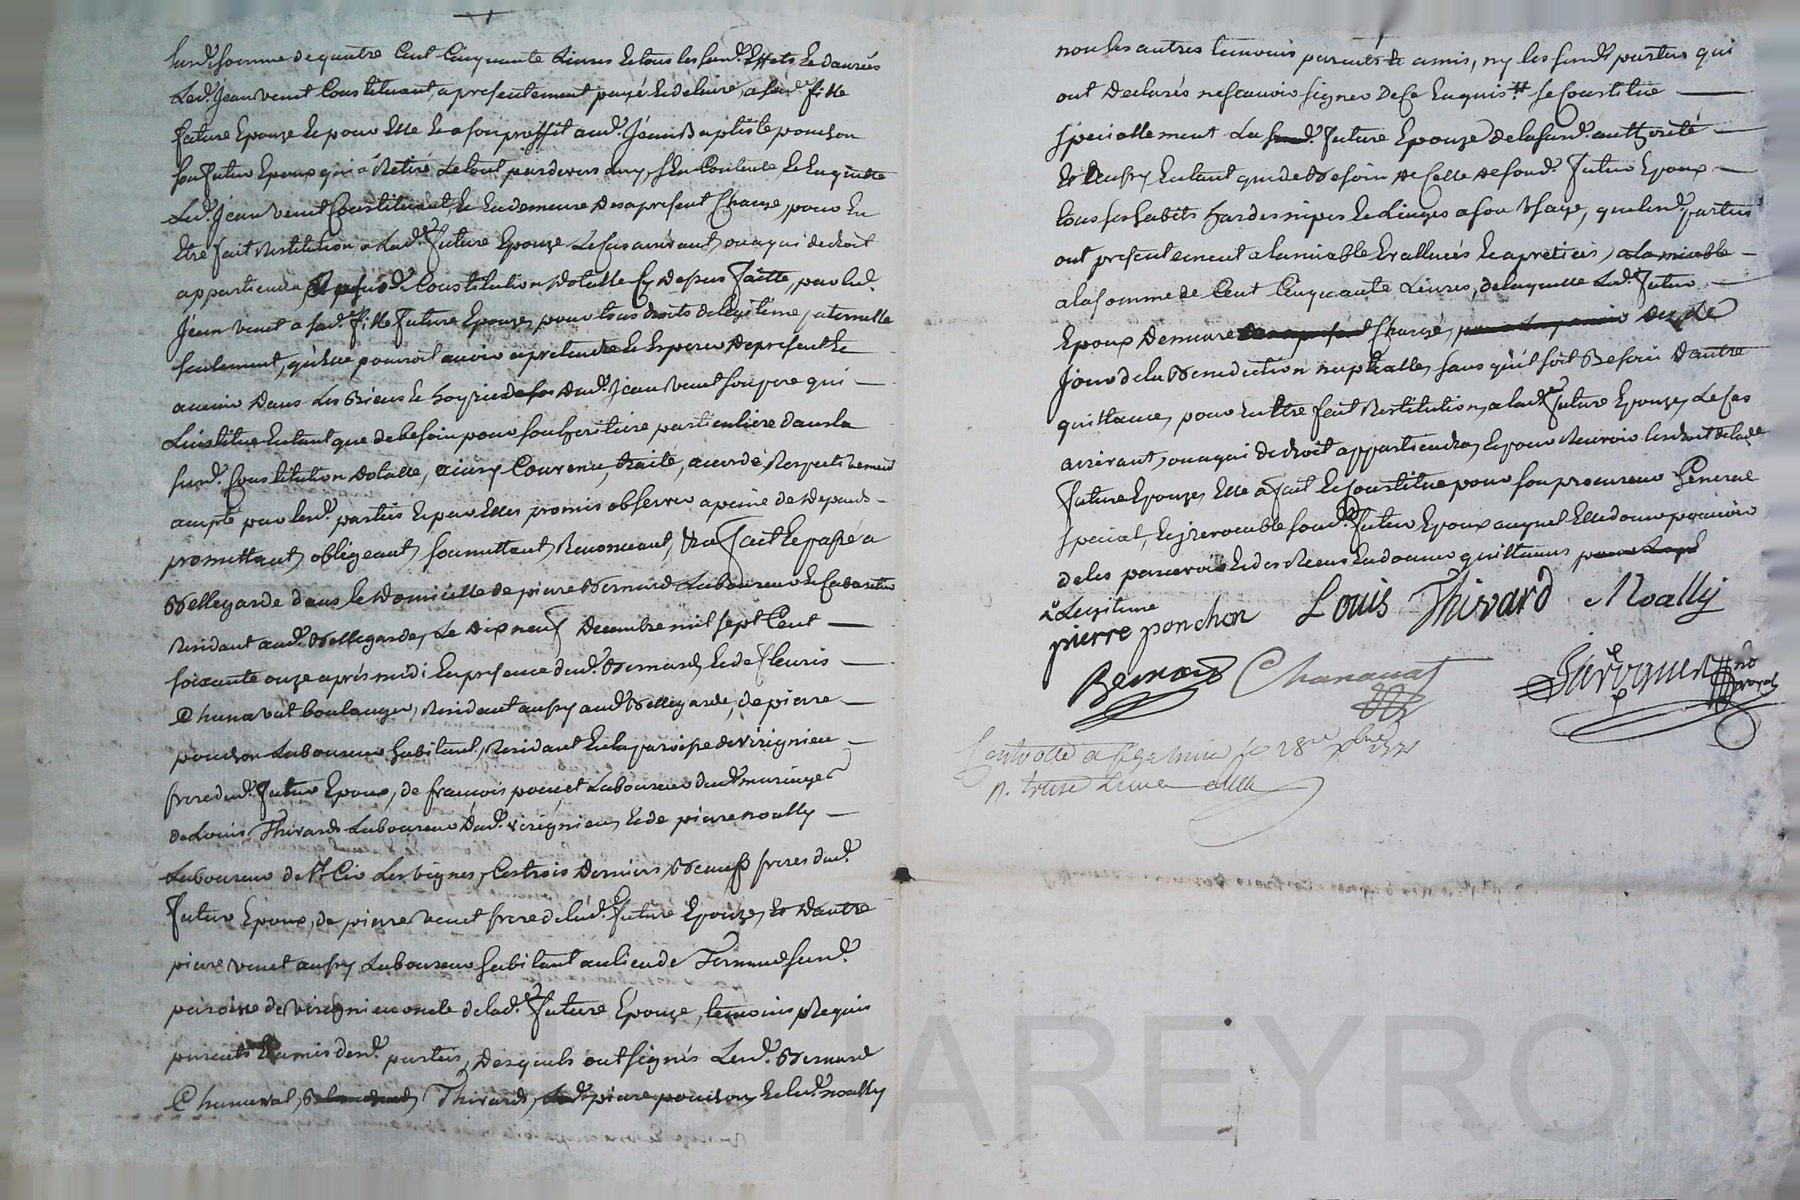 susd. somme de quatre Cent Cinquante Livres et tous les susd. Effets et danrées
Led. Jean venet Constituant, a presentement payé et delivré, a sad. fille
future Epouze et pour Elle et a son proffit aud. Jean Baptiste ponchon
son futur Epoux qui a Retiré Le tout pardevers Luy, s'En Contente et En quitte
Led. Jean venet Constituant, et En demeure Des a present Chargé, pour En
Etre fait Restitution, a Lad. future Epouze Le Cas arrivant, ou a qui de droit
appartiendra, Constitution Dotalle Cy Dessus faitte, par led.
Jean venet a sad. fille future Epouze, pour tous droits de legitime, paternelle
seulement, qu'elle pourroit avoir a pretendre et Esperer De present et
avenir Dans Les Biens et hoyrie Dud. Jean venet son pere qui —
L'institue En tant que de besoin pour son heritiere particuliere dans la
susd. Constitution Dotalle, ainsy Convenu, traité, acordé Respectivement
accepté par lesd. parties et par Elles promis observer a peine de Depends —
promettant, obligeant, soumettant, Renonceant, &a fait et passé a
Bellegarde dans le Domicille de pierre Bernard Laboureur et Cabaretier
Residant aud. Bellegarde, Le Dix neuf Decembre mil sept Cent —
soixante onze après midi En presence dud. Bernard, et de fleuris —
Chanavat boulanger, Residant aussy aud. Bellegarde, de pierre —
ponchon Laboureur habitant, Residant En la paroisse de virignieu —
frere dud. futur Epoux, de francois poncet Laboureur dud.
de Louis Thivard Laboureur Dud. virignieu, et de pierre noally —
Laboureur de St Cir Les vignes, Ces trois Derniers Beauf freres dud.
futur Epoux, de pierre venet frere de lad. future Epouze, Et D'autre
piere venet aussy Laboureur habitant au lieu de susd.
paroisse de virignieu oncle de lad. future Epouze, temoins Requis
parents et amis desd. parties, Desquels ont signés Lesd. Bernard
Chanavat, Thivard, pierre ponchon, et led. noally
non les autres temoins parents et amis, ny les susd. parties qui
ont Declarés ne scavoir signer De Ce Enquis # se Constitue —
specialement La future Epouze de la susd. authorité —
Et aussy En tant que de Besoin de Celle de sond. futur Epoux —
tous ses habits hardes nipes et Linges a son Usage, que lesd. parties
ont presentement a lamiable Evalluées et apretiées, a lamiable —
a la somme de Cent Cinquante Livres, de laquelle Led. futur —
Epoux Demeure Des a present Chargé, Des le
Jour de la Benediction nuptialle, sans qu'il soit Besoin D'autre
quittance, pour En Etre fait Restitution, a lad. future Epouze, Le Cas
arrivant, ou a qui de droit appartiendra, et pour Recevoir les droits de lade
future Epouze, Elle a fait et Constitué pour son procureur General
special, et jrrevocable sond. futur Epoux auquel Elle donne pouvoir
de les percevoir et des Recus En donner quittances
Legitime
pierre ponchon Louis Thivard Noally
Bernard Chanavat no royal
Controllé a le 28e Xbre 1771
R. treize Livres